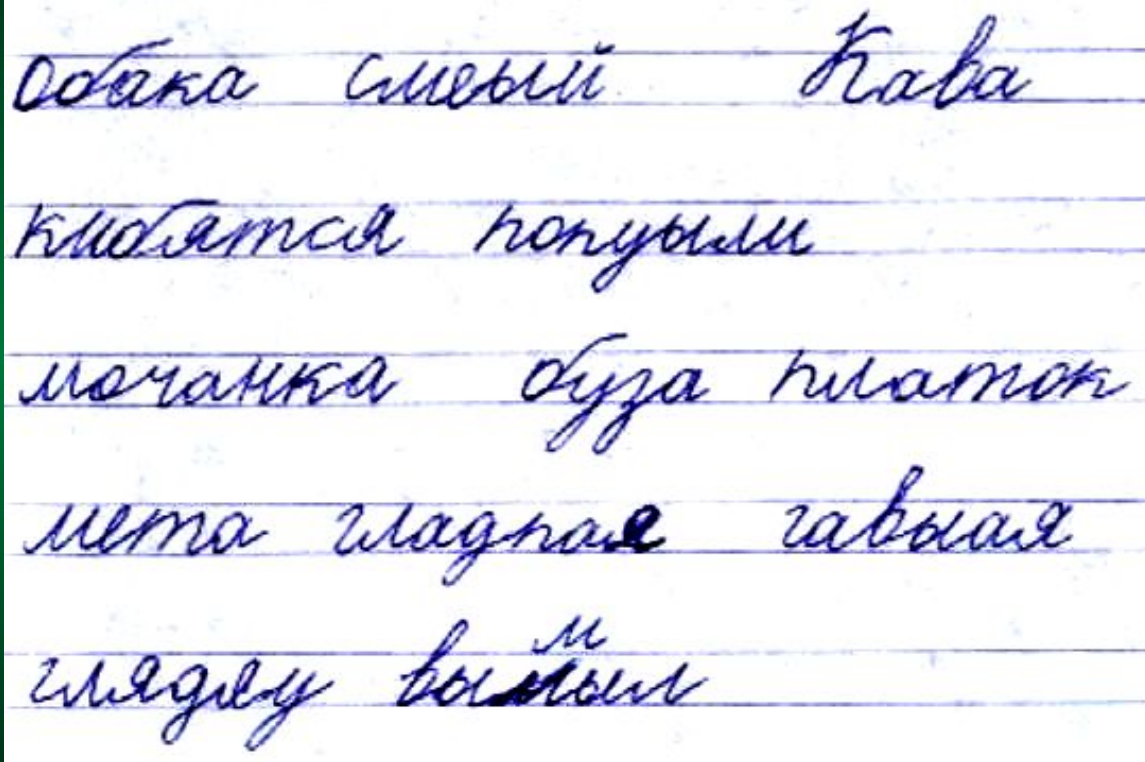 обака смеый Кава
киобятся попуыли
мочанка буза платок
мета гладкая гавыая
глядяу вымыл